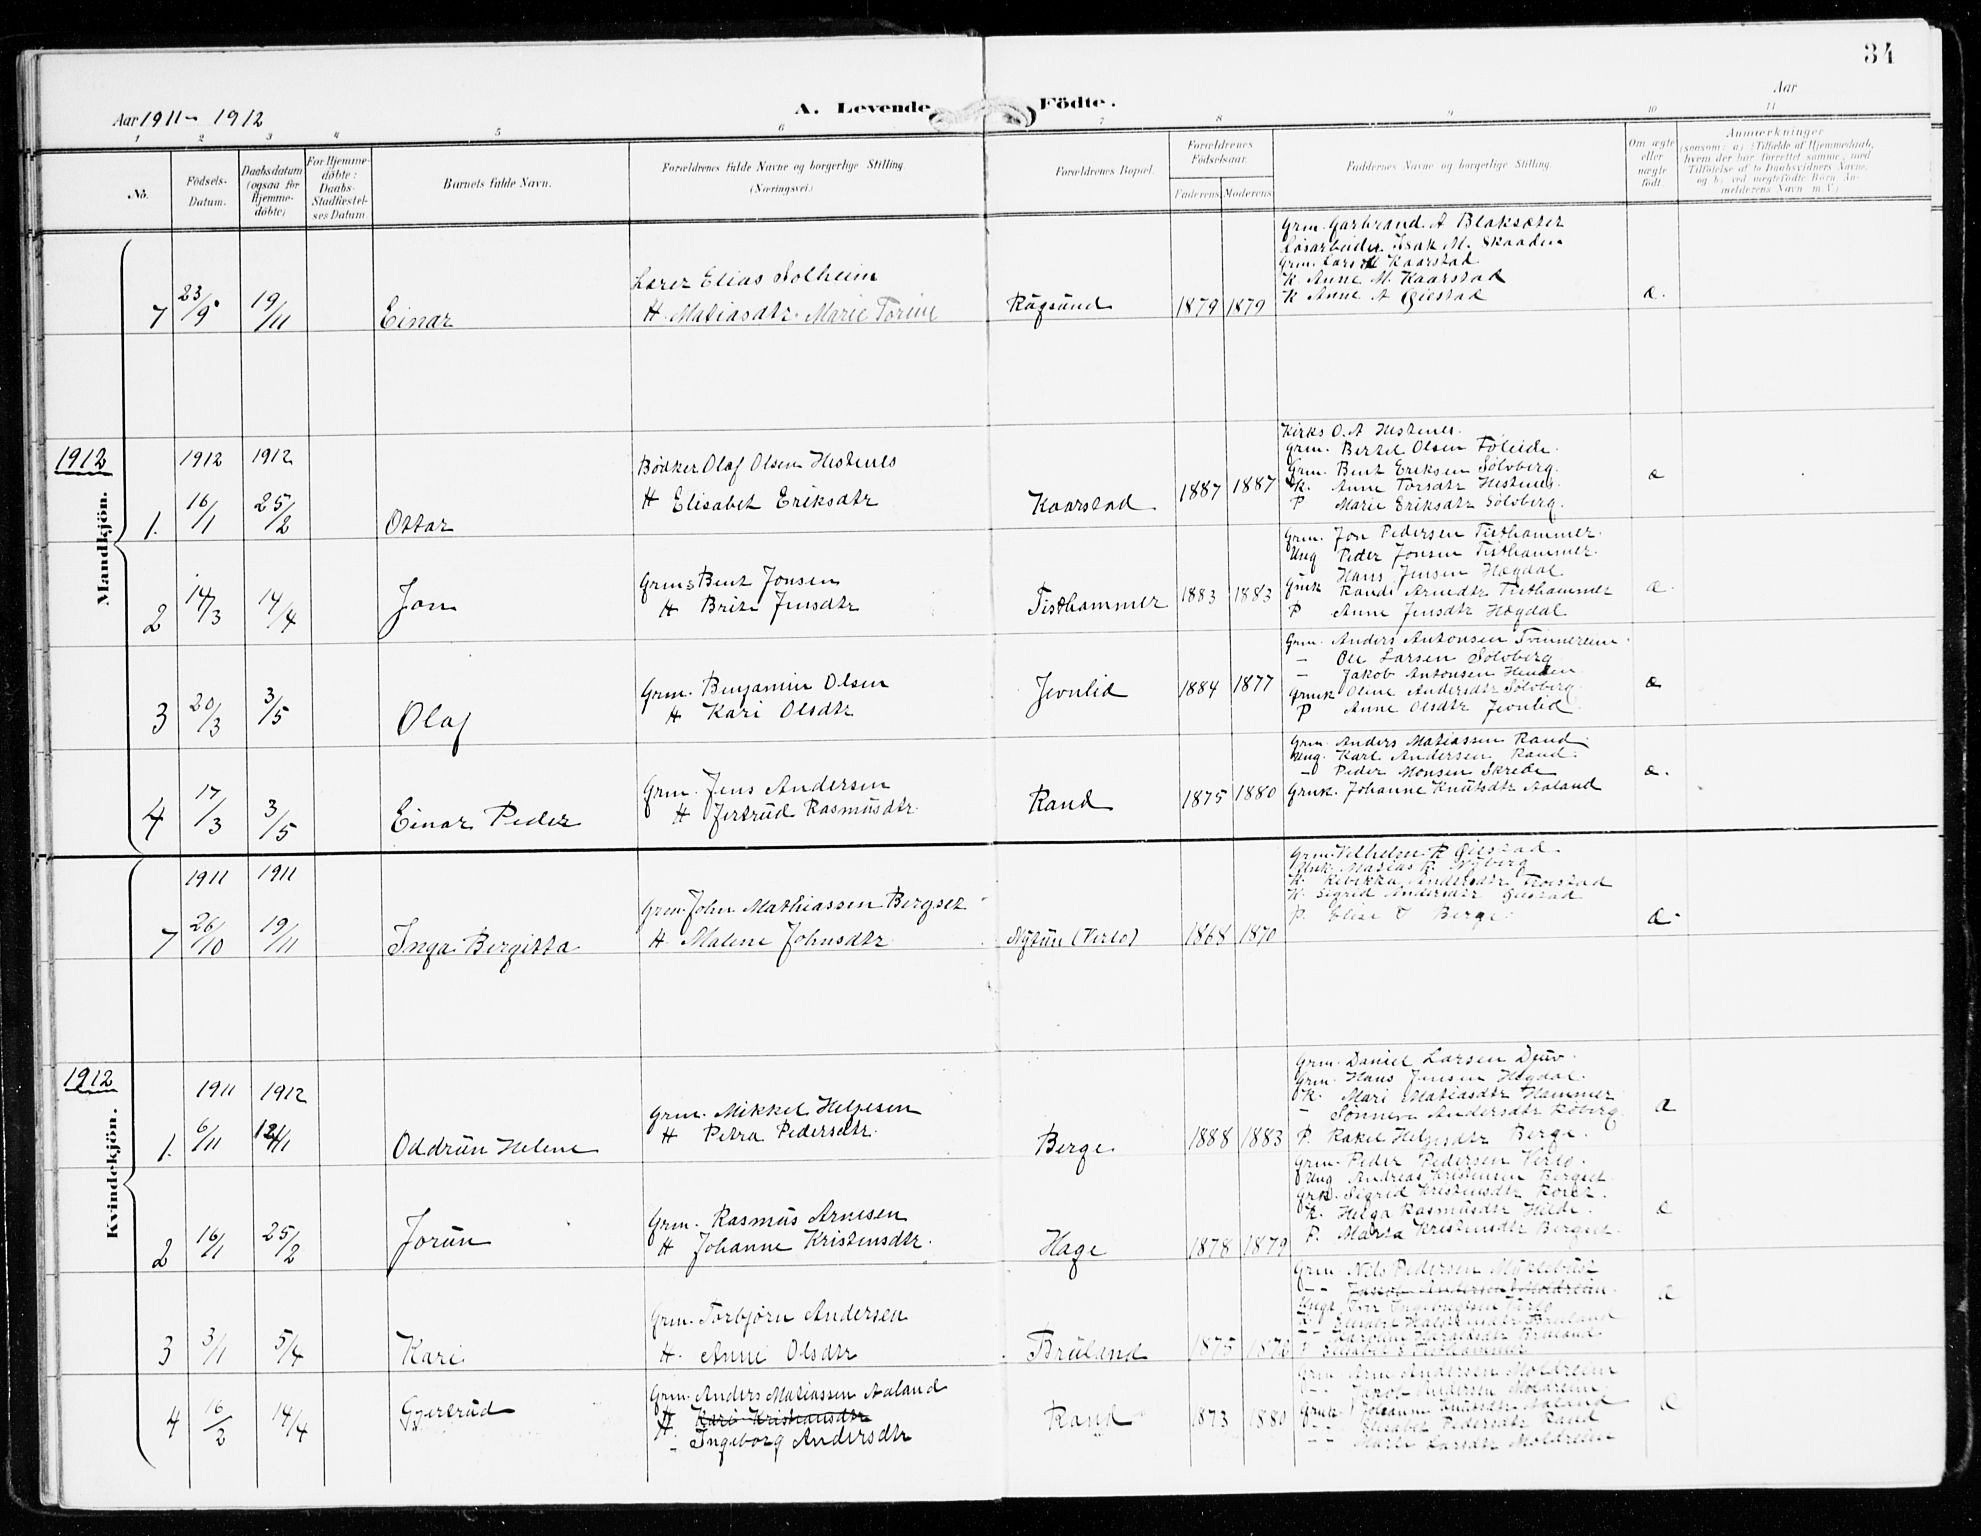 34
Aar 1911 - 1912
A. Levende Födte.
Aar
1 2 3 4 5 6 7 8 9 10 11
No.
Födsels-Datum.
Daabsdatum (ogsaa for Hjemmedöbte)
For Hjemmedöbte: Daabs-Stadfæstelses Datum
Barnets fulde Navn.
Forældrenes fulde Navne og borgerlige Stilling. (Næringsvei.)
Forældrenes Bopæl.
Forældrenes Födselsaar.
Faderens Moderens
Faddernes Navne og borgerlige Stilling.
Om ægte eller uægte födt.
Anmærkninger
Mandkjön.
7 23/9 19/11 Einar
Lærer Elias Solheim
H. Matiasdtr. Marie Torine
Rugsund 1879 1879
Grm. Garbrand A Blaksæter
Løsarbeider Isak M. Skaaden
Grm. Lars M Kaarstad
K Anne M. Kaarstad
K Anne A Øiestad
æ.
1912
1912 1912
1. 16/1 25/2 Ottar
Bødker Olaf Olsen Hestenes
H Elisabet Eriksdtr
Kaarstad 1887 1887
Kirks O. A Hestenes.
Grm. Bertel Olsen Foleide.
Grm. Bent Eriksen Sølvberg.
K. Anne Torsdtr Hestenes.
P Marie Eriksdtr Sølvberg.
æ
2 14/3 14/4 Jon
Grm. Bent Jonsen
H Brite Jensdtr
Tisthammer 1883 1883
Grm. Jon Pedersen Tisthammer.
Ung Peder Jonsen Tisthammer.
Hans Jensen Hægdal
Gmk Randi Arnedtr Tisthammer
P Anne Jensdtr Hægdal
æ.
3 20/3 3/5 Olaf
Grm. Benjamin Olsen
H Kari Olsdtr
Jevnlid 1884 1877
Grm. Anders Antonsen Tvinnereim.
- Ole Larsen Sølvberg
- Jakob Antonsen Henden
Grmk Oline Andersdtr Sølvberg
P Anne Olsdtr Jevnlid.
æ
4 17/3 3/5 Einar Peder
Grm. Jens Andersen
H Jertrud Rasmusdtr.
Rand 1875 1880
Grm. Anders Matiassen Rand.
Ung. Karl Andersen Rand.
- Peder Monsen Skrede
Grmk. Johanne Knutsdtr Aaland
æ.
Kvindekjön.
1911 1911
7 26/10 19/11 Inga Bergitta
Grm. John Mathiassen Bergset
H. Malene Johnsdtr.
Nytun (Verlo) 1868 1870
Grm. Vilhelm R Øiestad.
Matias R. Nyberg
K. Rebekka Andersdtr
K. Sigrid Andersdtr Øiestad
P. Elise J Berge.
æ.
1912
1911 1912
1. 6/11 /1 Oddrun Helene
Grm. Mikkel Helgesen
H Petra Pedersdtr.
Berge 1888 1883
Grm. Daniel Larsen Djuv.
Grm. Hans Jensen Hægdal.
K. Mari Matiasdtr Hammer
- Sønneva Andersdtr Roberg.
P. Rakel Helgesdtr Berge.
æ
2 16/1 25/2 Jorun
Grm. Rasmus Arnesen
H Johanne Kristensdtr.
Hage 1878 1879
Grm. Peder Pedersen Verlo.
Ung Andreas Kristensen Bergset.
Grk. Sigrid Kristensdtr
K. Helga Rasmusdtr Hilde.
P. Marta Kristensdtr Bergset.
æ
3 3/1 5/4 Kari
Grm. Torbjørn Andersen
H. Anne Olsdtr
Bruland 1875 1876
Grm. Nils Pedersen Myklebust
Andersen Moldreim
Verlo
Bruland
Bruland
P Elisabet Tisthammer
æ
4 16/2 14/4 Gjertrud
Grm. Anders Matiassen Aaland
H Kari Kristiansdtr
- Ingeborg Andersdtr
Rand 1873 1880
Grm. Andersen Moldreim
- Jakob Andersen Moldreim
Grmk Johanne Knutsdtr Aaland
- Elisabet Pedersdtr Rand
- Marte Larsdtr Moldreim
æ